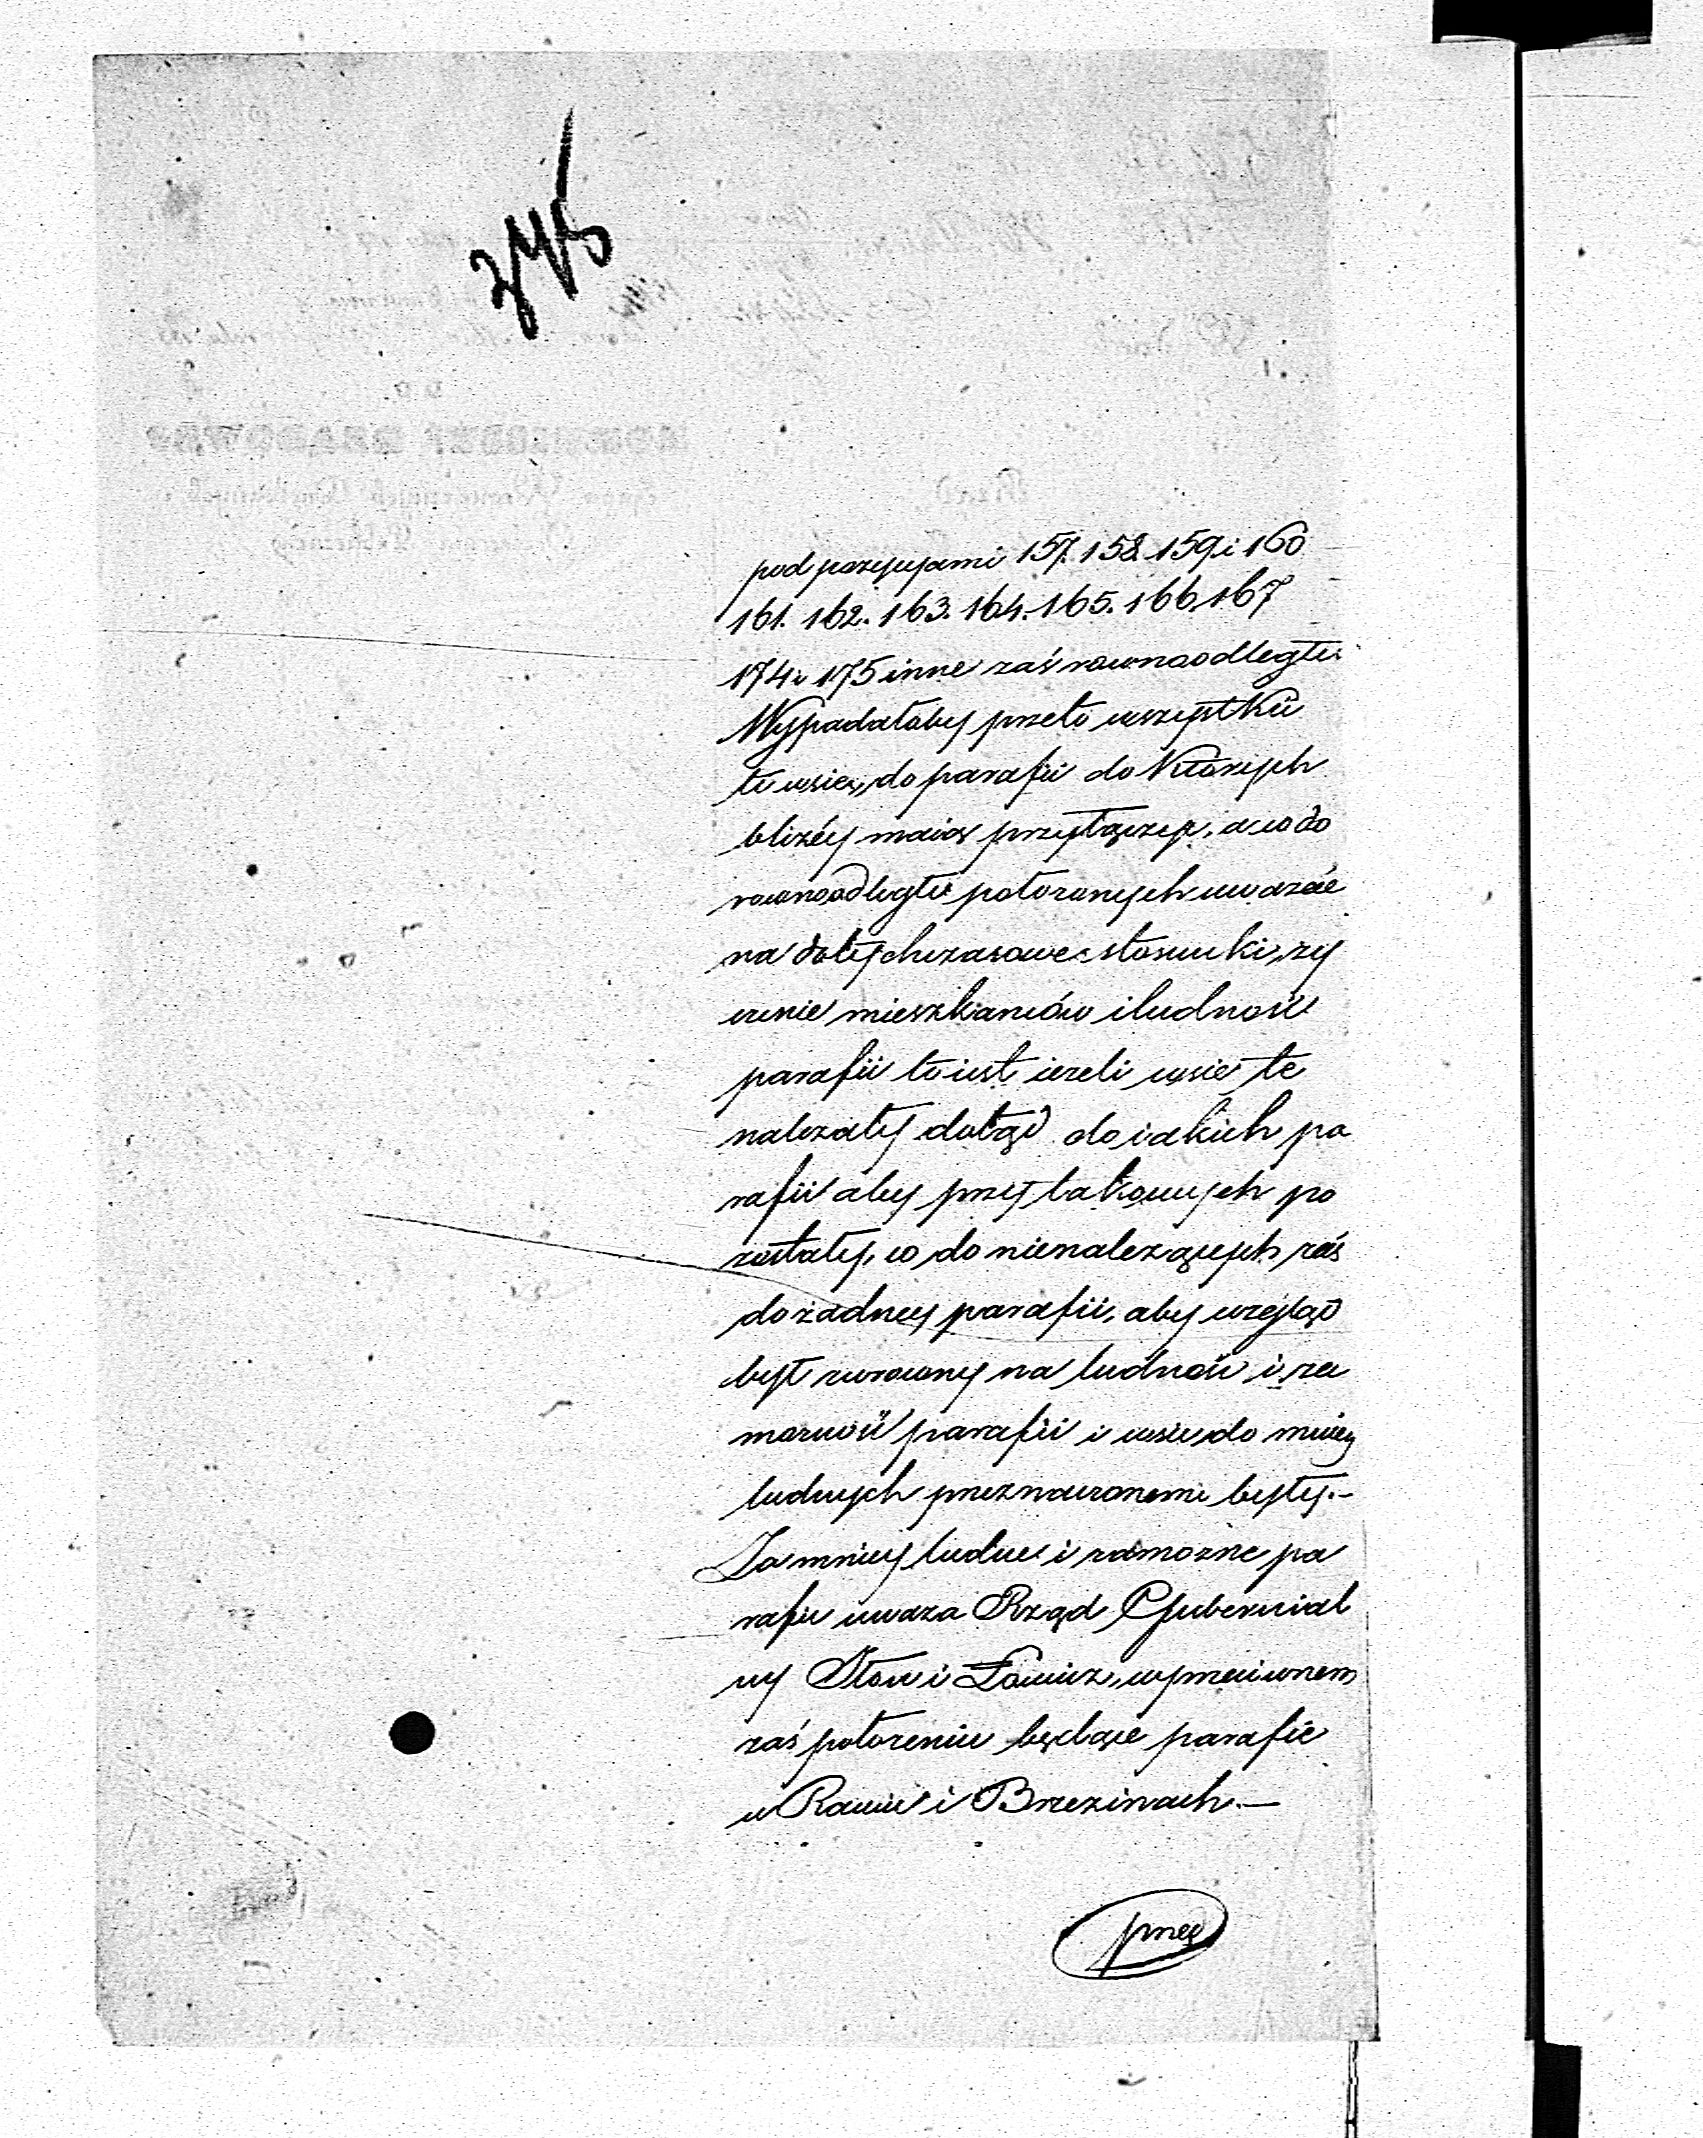 245
pod pozycyami 157. 158. 159. i 160
161. 162. 163. 164. 165. 166. 167
174 i 175 inne zaś rownoodległe.
Wypadałoby przeto wszystkie
te wsie, do parafii do których
bliżéy maią przyłączyć, a co do
rownoodległe położonych uważać
na dotychczasowe stosunki, zy
czenie mieszkańców i ludność
parafii to iest ieżeli wsie te
należały dotąd do iakich pa
rafii aby przy takowych po
zostały, co do nienależących zaś
do żadney parafii, aby wzgląd
był zwrocony na ludność i za
możność parafii i wsie do mniey
ludnych przeznaczonemi były.—
Za mniey ludne i zamożne pa
rafie uważa Rząd Gubernial
ny Skierniewice
zaś położeniu będące parafie
w Rawie i Brzezinach.—